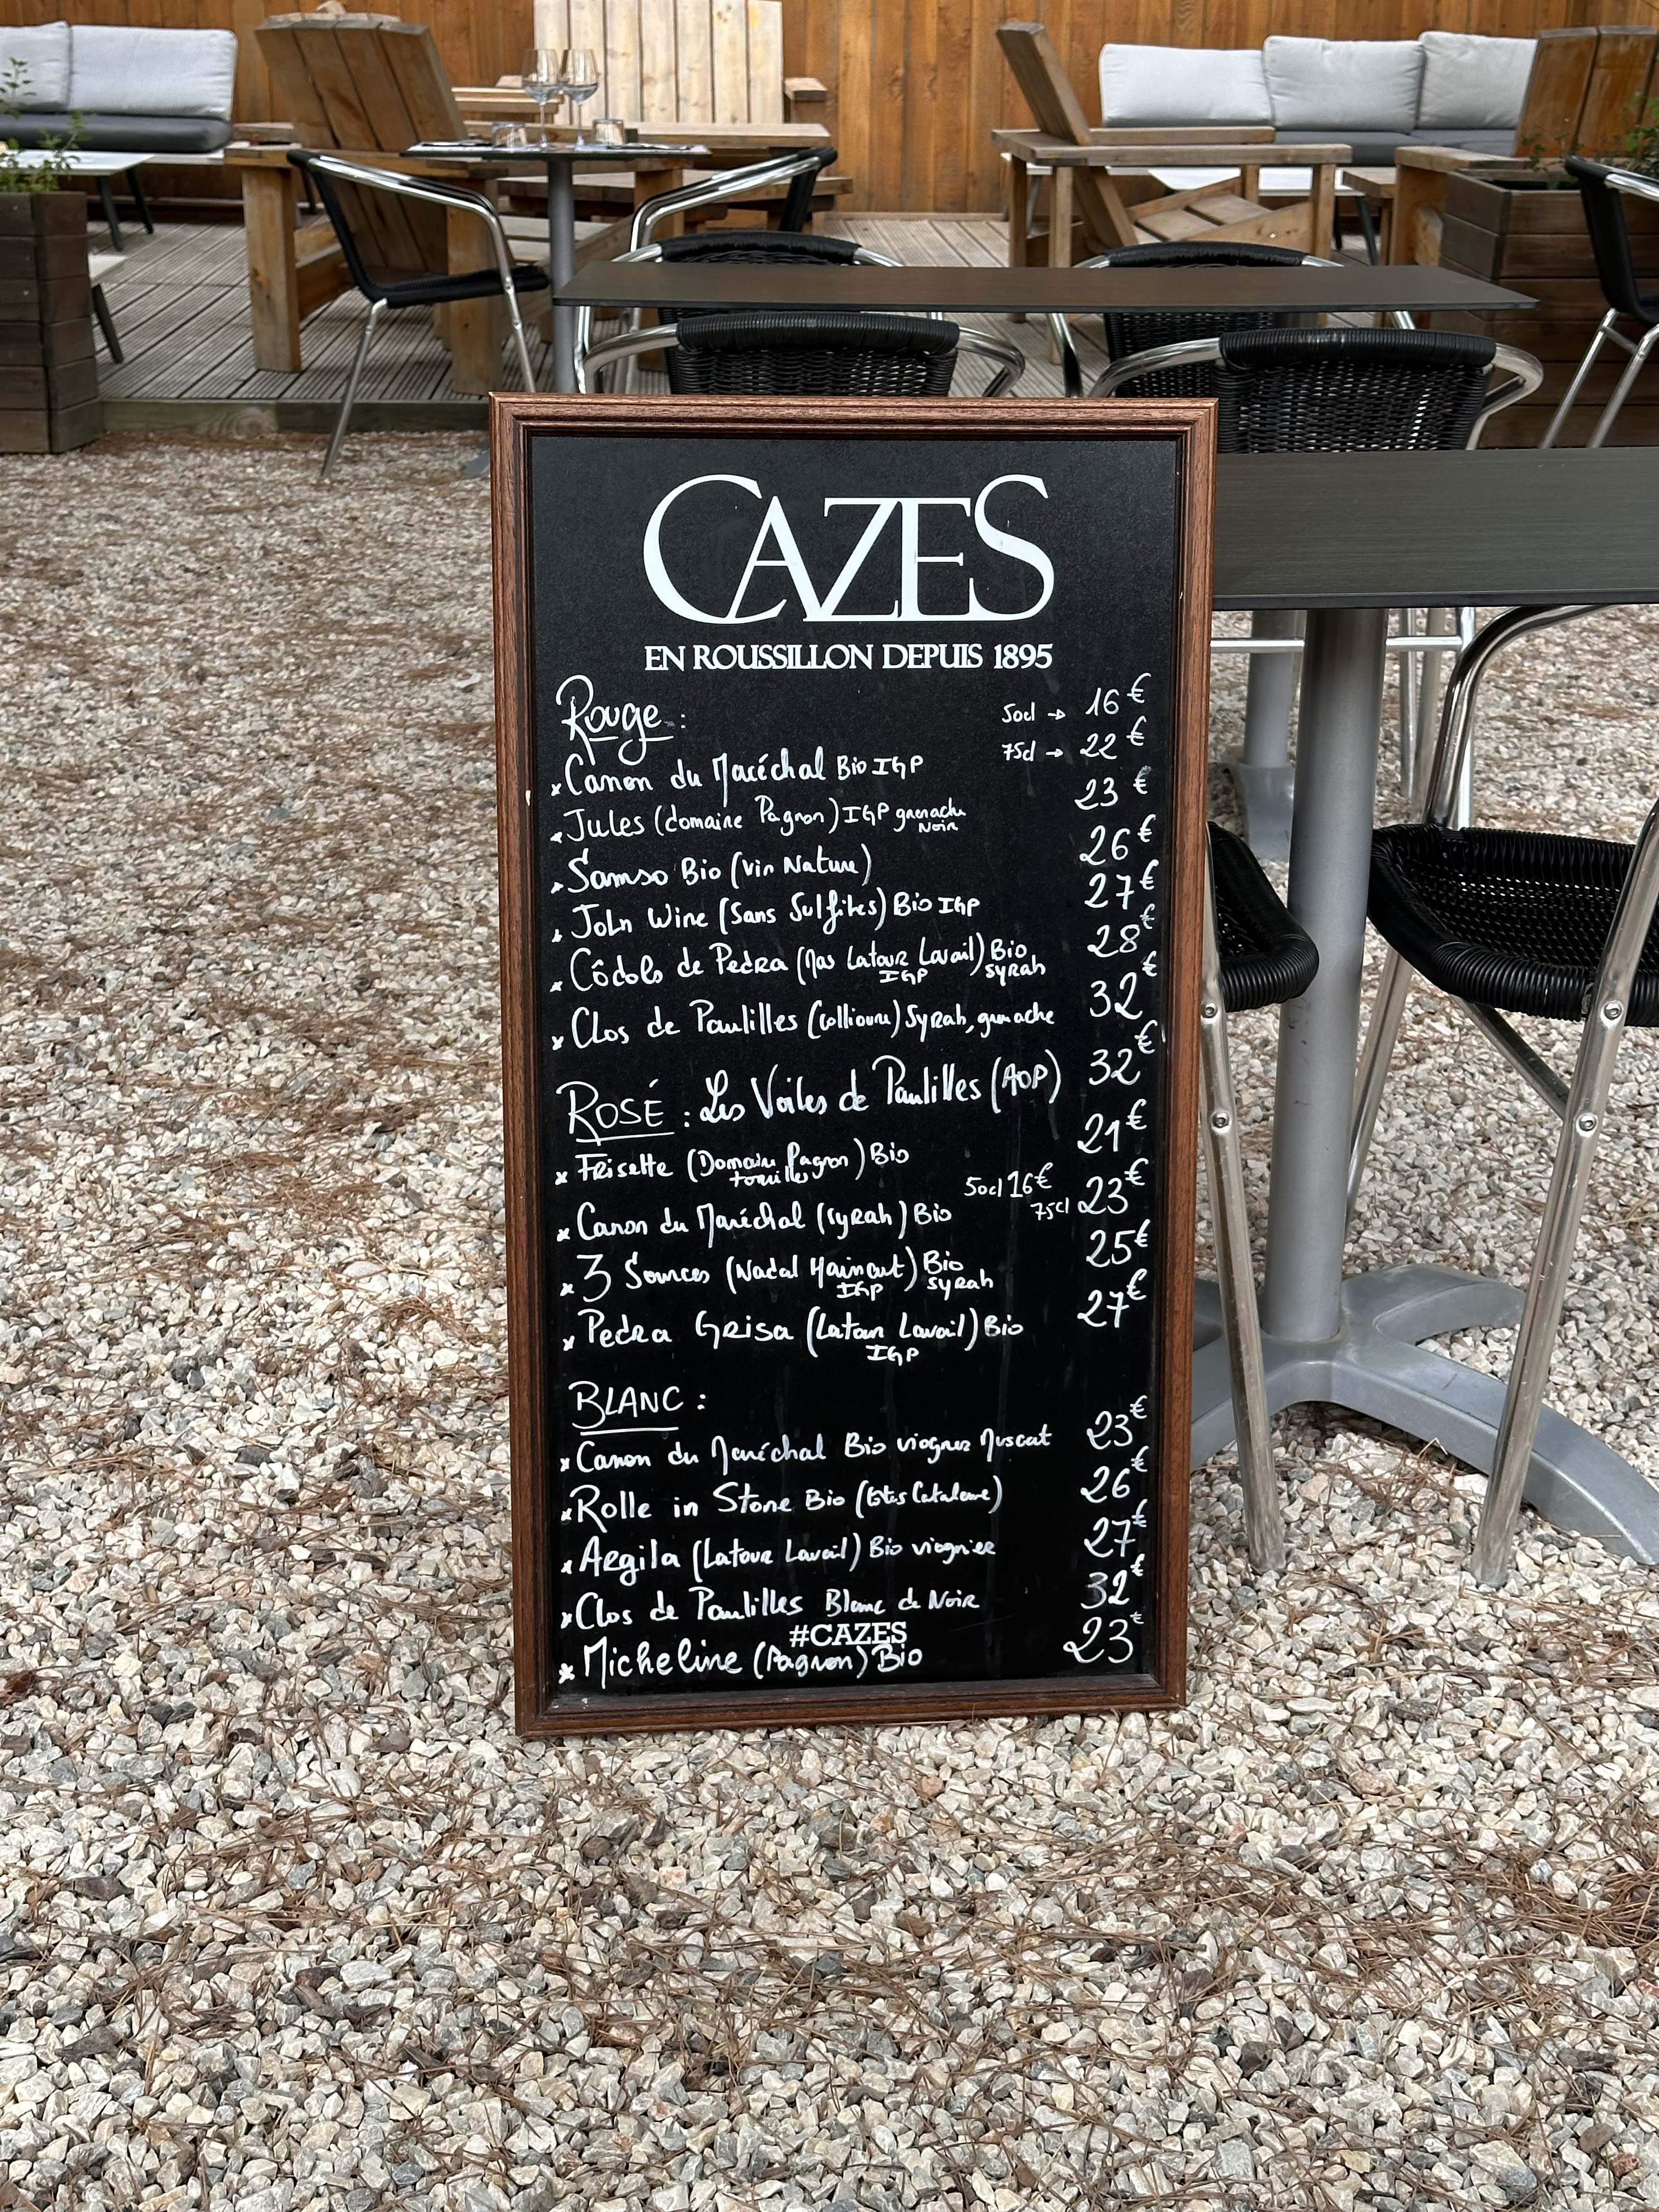 CAZES
EN ROUSSILLON DEPUIS 1895
Rouge :
50cl → 16€
75cl → 22€
x Canon du Maréchal Bio IGP
x Jules (domaine Pagnon) IGP grenache Noir 23€
x Samso Bio (vin Nature) 26€
x John Wine (Sans Sulfites) Bio IGP 27€
x Còdols de Pedra (Mas Latour Lavail) IGP Bio syrah 28€
x Clos de Paulilles (Collioure) Syrah, grenache 32€
ROSÉ : Les Voiles de Paulilles (AOP) 32€
x Frisette (Domaine Pagnon) Bio 21€
50cl 16€
x Canon du Maréchal (syrah) Bio 75cl 23€
x 3 Sources (Nadal Hainaut) IGP Bio syrah 25€
x Pedra Grisa (Latour Lavail) IGP Bio 27€
BLANC :
x Canon du Maréchal Bio viognier Muscat 23€
x Rolle in Stone Bio (Côtes Catalane) 26€
x Argila (Latour Lavail) Bio viognier 27€
x Clos de Paulilles Blanc de Noir 32€
#CAZES
x Micheline (Pagnon) Bio 23€